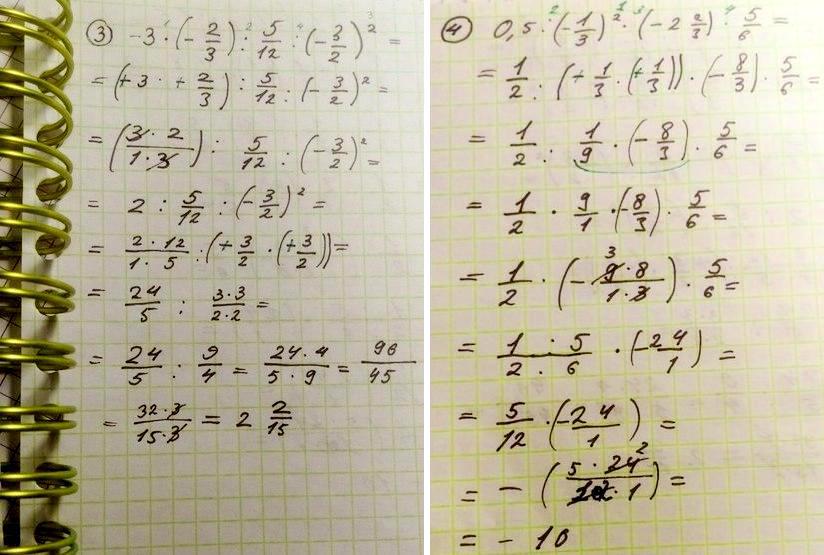 ③ -3 · (-2/3) : 5/12 : (-3/2)² =
= (+3 · +2/3) : 5/12 : (-3/2)² =
= (3·2/1·3) : 5/12 : (-3/2)² =
= 2 : 5/12 : (-3/2)² =
= 2·12/1·5 : (+3/2 · (+3/2)) =
= 24/5 : 3·3/2·2 =
= 24/5 : 9/4 = 24·4/5·9 = 96/45
= 32·3/15·3 = 2 2/15
④ 0,5 : (-1/3)² · (-2 2/3) · 5/6 =
= 1/2 : (+1/3 · (+1/3)) · (-8/3) · 5/6 =
= 1/2 : 1/9 · (-8/3) · 5/6 =
= 1/2 · 9/1 · (-8/3) · 5/6 =
= 1/2 · (-9·8/1·3) · 5/6 =
= 1·5/2·6 · (-24/1) =
= 5/12 · (-24/1) =
= - (5·24/12·1) =
= - 10